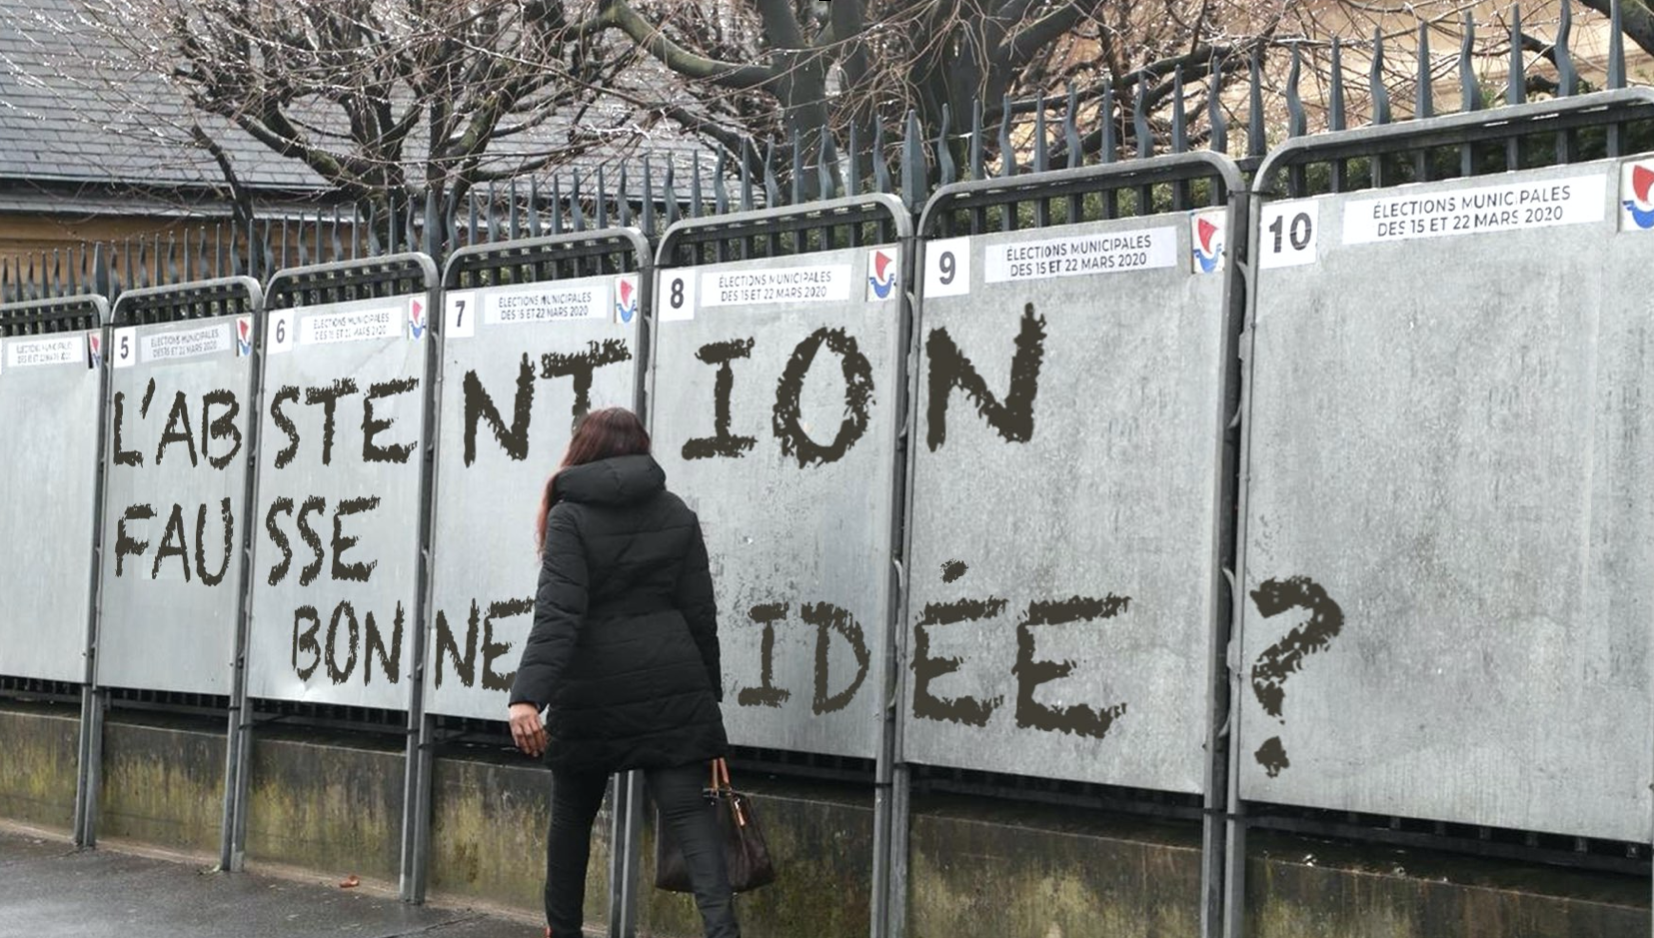 5 ÉLECTIONS MUNICIPALES
DES 15 ET 22 MARS 2020
6 ÉLECTIONS MUNICIPALES
DES 15 ET 22 MARS 2020
7 ÉLECTIONS MUNICIPALES
DES 15 ET 22 MARS 2020
8 ÉLECTIONS MUNICIPALES
DES 15 ET 22 MARS 2020
9 ÉLECTIONS MUNICIPALES
DES 15 ET 22 MARS 2020
10 ÉLECTIONS MUNICIPALES
DES 15 ET 22 MARS 2020
L'ABSTENTION
FAUSSE
BONNE IDÉE ?